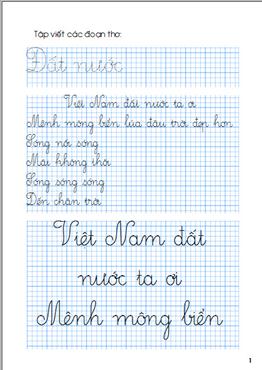 Tập viết các đoạn thơ:
Đất nước
Việt Nam đất nước ta ơi
Mênh mông biển lúa đâu trời đẹp hơn
Sóng nối sóng
Mãi không thôi
Sóng sóng sóng
Đến chân trời
Việt Nam đất
nước ta ơi
Mênh mông biển
1